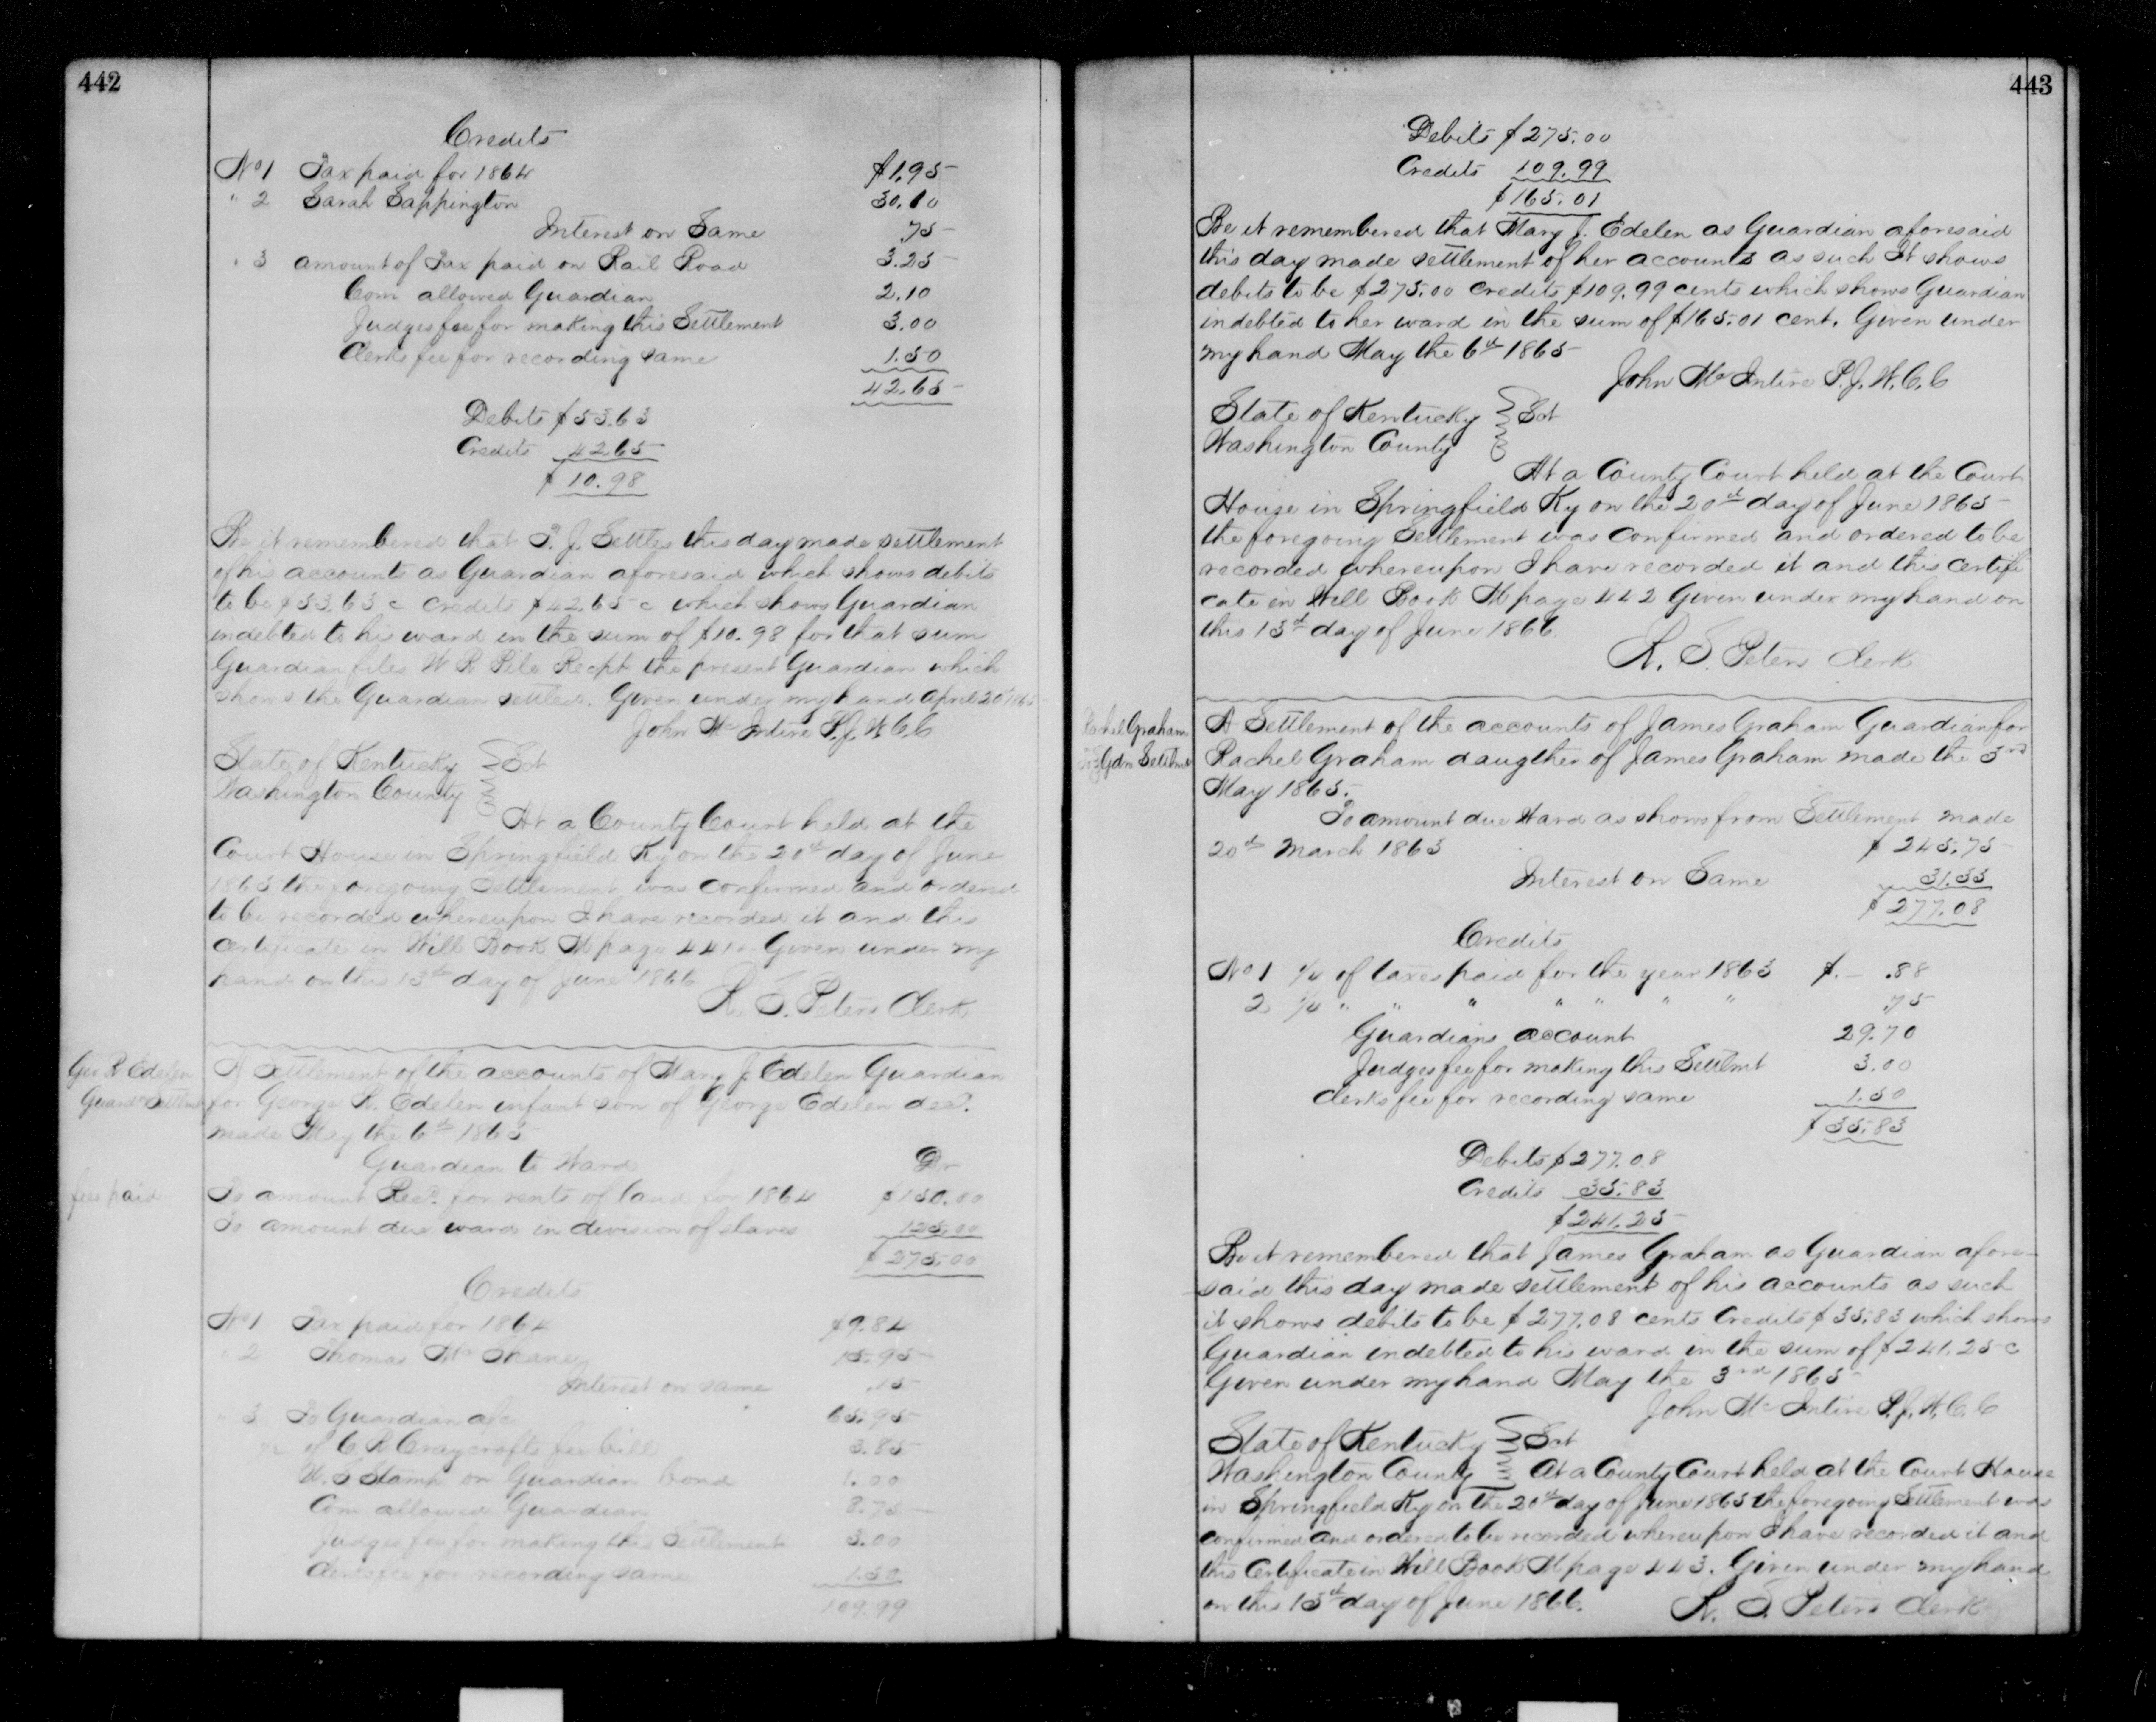 442
Credits
No 1 Tax paid for 1864 $1.95
" 2 Sarah Sappington 30.10
Interest on Same .75
" 3 amount of Tax paid on Rail Road 3.25
Com allowed Guardian 2.10
Judges fee for making this Settlement 3.00
Clerks fee for recording same 1.50
42.65
Debits $53.63
Credits 42.65
$10.98
Be it remembered that T. J. Settles this day made settlement
of his accounts as Guardian aforesaid which shows debits
to be $53.63 c credits $42.65 c which shows Guardian
indebted to his ward in the sum of $10.98 for that sum
Guardian files W R Pile Recpt the present Guardian which
shows the Guardian settled. Given under my hand April 20th 1865
John McIntire P.J.W.C.C
State of Kentucky } Sct
Washington County
At a County Court held at the
Court House in Springfield Ky on the 20th day of June
1865 the foregoing Settlement was confirmed and ordered
to be recorded whereupon I have recorded it and this
certificate in Will Book M page 441. Given under my
hand on this 13th day of June 1866
R. S. Peters Clerk
Geo R Edelen
Guard Settlmt
A Settlement of the accounts of Mary J. Edelen Guardian
for George R. Edelen infant son of George Edelen decd.
made May the 6th 1865
Guardian to Ward Dr
fees paid
To amount Recd. for rents of land for 1864 $150.00
To amount due ward in division of slaves 125.00
$275.00
Credits
No 1 Tax paid for 1864 $9.84
" 2 Thomas McShane 15.95
Interest on same .15
" 3 To Guardian a/c 65.95
1/2 of C R Craycrofts fee bill 3.85
U. S Stamp on Guardian bond 1.00
Com allowed Guardian 8.75
Judges fee for making this Settlement 3.00
Clerks fee for recording same 1.50
109.99
443
Debits $275.00
Credits 109.99
$165.01
Be it remembered that Mary J. Edelen as Guardian aforesaid
this day made settlement of her accounts as such It shows
debits to be $275.00 credits $109.99 cents which shows Guardian
indebted to her ward in the sum of $165.01 cent. Given under
my hand May the 6th 1865
John McIntire P.J.W.C.C
State of Kentucky } Sct
Washington County
At a County Court held at the Court
House in Springfield Ky on the 20th day of June 1865
the foregoing Settlement was confirmed and ordered to be
recorded whereupon I have recorded it and this certifi
cate in Will Book M page 442 Given under my hand on
this 13th day of June 1866.
R. S. Peters Clerk
Rachel Graham
Gdn Settlmt
A Settlement of the accounts of James Graham Guardian for
Rachel Graham daugther of James Graham made the 3rd
May 1865.
To amount due Ward as shows from Settlement made
20th March 1863 $245.75
Interest on Same 31.33
$277.08
Credits
No 1 1/4 of taxes paid for the year 1863 $.— .88
2 1/4 " " " " " " " .75
Guardians account 29.70
Judges fee for making this Settlmt 3.00
Clerks fee for recording same 1.50
$35.83
Debits $277.08
Credits 35.83
$241.25
Be it remembered that James Graham as Guardian afore-
said this day made settlement of his accounts as such
it shows debits to be $277.08 cents Credits $35.83 which shows
Guardian indebted to his ward in the sum of $241.25 c
Given under my hand May the 3rd 1865
John McIntire P.J.W.C.C
State of Kentucky } Sct
Washington County } At a County Court held at the Court House
in Springfield Ky on the 20th day of June 1865 the foregoing Settlement was
confirmed and ordered to be recorded whereupon I have recorded it and
this Certificate in Will Book M page 443. Given under my hand
on this 13th day of June 1866.
R. S. Peters Clerk